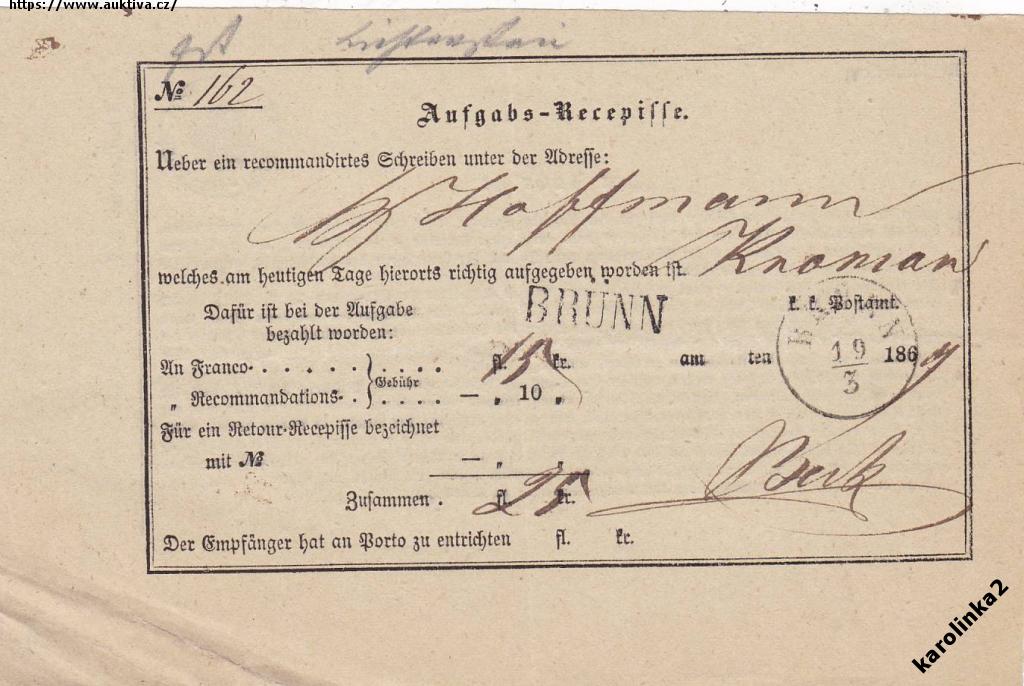 https://www.auktiva.cz/
№ 162
Aufgabs-Recepisse.
Ueber ein recommandirtes Schreiben unter der Adresse:
Hoffmann
welches am heutigen Tage hierorts richtig aufgegeben worden ist. Kromau
Dafür ist bei der Aufgabe
bezahlt worden:
BRÜNN
k. k. Postamt.
An Franco . . . . . . . . . . fl. 15 kr.
Gebühr
am ten 19/3 1869
„ Recommandations . . . . . . — „ 10 „
Für ein Retour-Recepisse bezeichnet
mit № — „ „
Zusammen . fl. 25 kr.
Der Empfänger hat an Porto zu entrichten fl. kr.
karolinka2